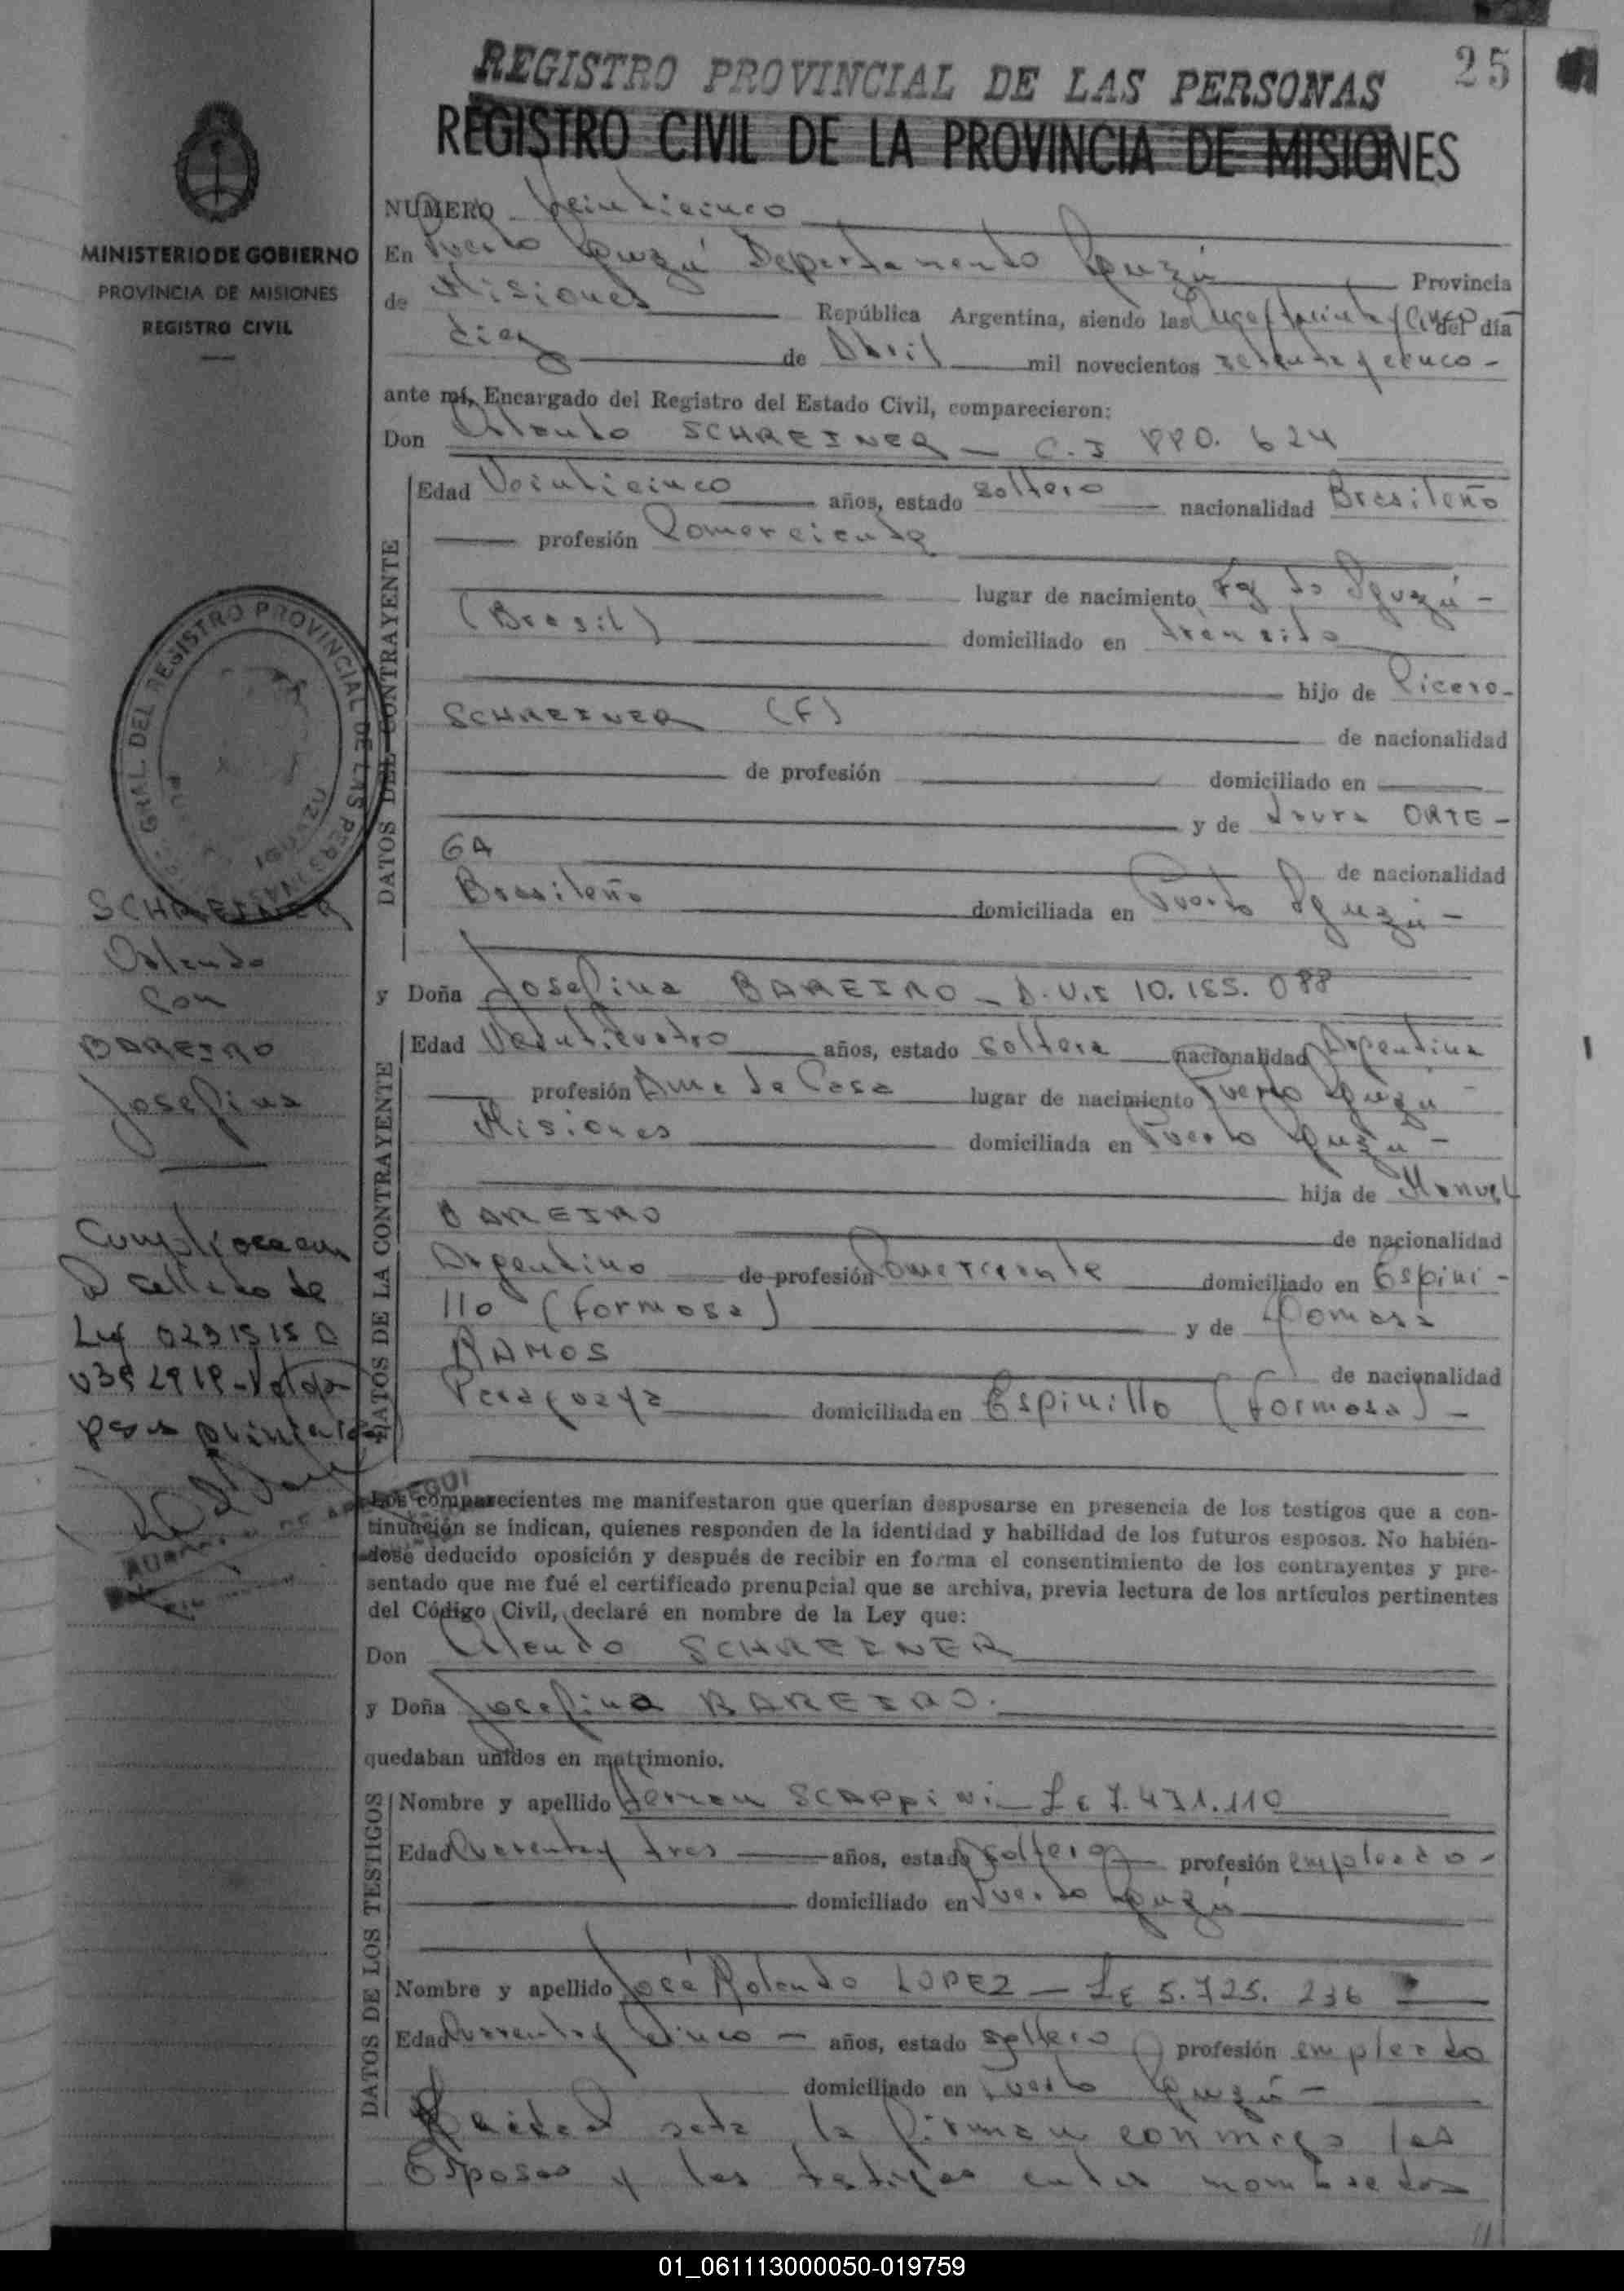 25
REGISTRO PROVINCIAL DE LAS PERSONAS
REGISTRO CIVIL DE LA PROVINCIA DE MISIONES
MINISTERIO DE GOBIERNO
PROVINCIA DE MISIONES
REGISTRO CIVIL
NUMERO Veinticinco
En Puerto Iguazú Departamento Iguazú Provincia
de Misiones República Argentina, siendo las del día
diez de Abril mil novecientos setenta y cinco -
ante mí, Encargado del Registro del Estado Civil, comparecieron:
Don SCHREINER - C.I PPO. 624
DATOS DEL CONTRAYENTE
Edad Veinticinco años, estado soltero nacionalidad Brasileño
profesión Comerciante
lugar de nacimiento Fg do Iguazú -
(Brasil) domiciliado en transito
hijo de Cicero -
SCHREINER (F) de nacionalidad
de profesión domiciliado en
y de Laura ORTE -
GA de nacionalidad
Brasileño domiciliada en Puerto Iguazú -
SCHREINER
Orlando
Con
BAREIRO
Josefina
y Doña Josefina BAREIRO - D.N.I 10.155.088
DATOS DE LA CONTRAYENTE
Edad Veinticuatro años, estado soltera nacionalidad Argentina
profesión Ama de Casa lugar de nacimiento Puerto Iguazú
Misiones domiciliada en Puerto Iguazú -
hija de Manuel
BAREIRO de nacionalidad
Argentino de profesión Comerciante domiciliado en Espini -
llo (Formosa) y de Tomasa
RAMOS de nacionalidad
Paraguaya domiciliada en Espinillo (Formosa) -
sellado de
Ley
Los comparecientes me manifestaron que querían desposarse en presencia de los testigos que a con-
tinuación se indican, quienes responden de la identidad y habilidad de los futuros esposos. No habién-
dose deducido oposición y después de recibir en forma el consentimiento de los contrayentes y pre-
sentado que me fué el certificado prenupcial que se archiva, previa lectura de los artículos pertinentes
del Código Civil, declaré en nombre de la Ley que:
Don SCHREINER
y Doña Josefina BAREIRO.
quedaban unidos en matrimonio.
DATOS DE LOS TESTIGOS
Nombre y apellido SCAPPINI - LE 7.471.110
Edad Cuarenta y tres años, estado soltero profesión empleado -
domiciliado en Puerto Iguazú
Nombre y apellido José Rolando LOPEZ - LE 5.725.236
Edad Cuarenta y Cinco - años, estado soltero profesión empleado
domiciliado en Puerto Iguazú -
acta la firman conmigo los
Esposos y los testigos nombrados
01_061113000050-019759